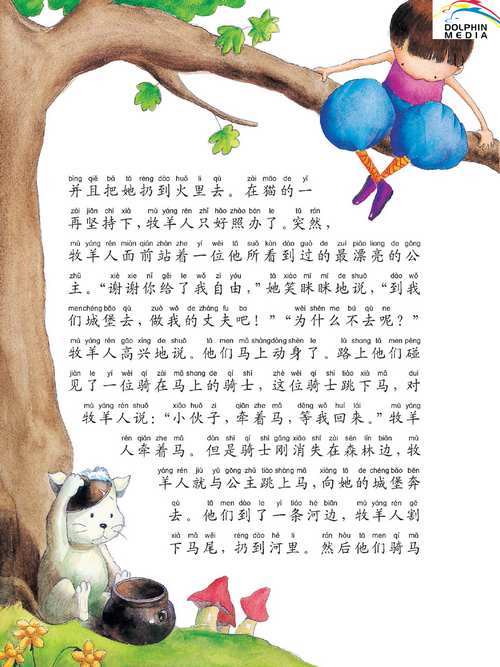 DOLPHIN
MEDIA
bìng qiě bǎ tā rēng dào huǒ lǐ qù zài māo de yí
并且把她扔到火里去。在猫的一
zài jiān chí xià mù yáng rén zhǐ hǎo zhào bàn le tū rán
再坚持下,牧羊人只好照办了。突然,
mù yáng rén miàn qián zhàn zhe yí wèi tā suǒ kàn dào guo de zuì piào liang de gōng
牧羊人面前站着一位他所看到过的最漂亮的公
zhǔ xiè xie nǐ gěi le wǒ zì yóu tā xiào mī mī de shuō dào wǒ
主。“谢谢你给了我自由,”她笑眯眯地说,“到我
men chéng bǎo qù zuò wǒ de zhàng fu ba wèi shén me bú qù ne
们城堡去,做我的丈夫吧!”“为什么不去呢?”
mù yáng rén gāo xìng de shuō tā men mǎ shàng dòng shēn le lù shang tā men pèng
牧羊人高兴地说。他们马上动身了。路上他们碰
jiàn le yí wèi qí zài mǎ shang de qí shì zhè wèi qí shì tiào xià mǎ duì
见了一位骑在马上的骑士,这位骑士跳下马,对
mù yáng rén shuō xiǎo huǒ zi qiān zhe mǎ děng wǒ huí lái mù yáng
牧羊人说:“小伙子,牵着马,等我回来。”牧羊
rén qiān zhe mǎ dàn shì qí shì gāng xiāo shī zài sēn lín biān mù
人牵着马。但是骑士刚消失在森林边,牧
yáng rén jiù yǔ gōng zhǔ tiào shàng mǎ xiàng tā de chéng bǎo bēn
羊人就与公主跳上马,向她的城堡奔
qù tā men dào le yì tiáo hé biān mù yáng rén gē
去。他们到了一条河边,牧羊人割
xià mǎ wěi rēng dào hé lǐ rán hòu tā men qí mǎ
下马尾,扔到河里。然后他们骑马